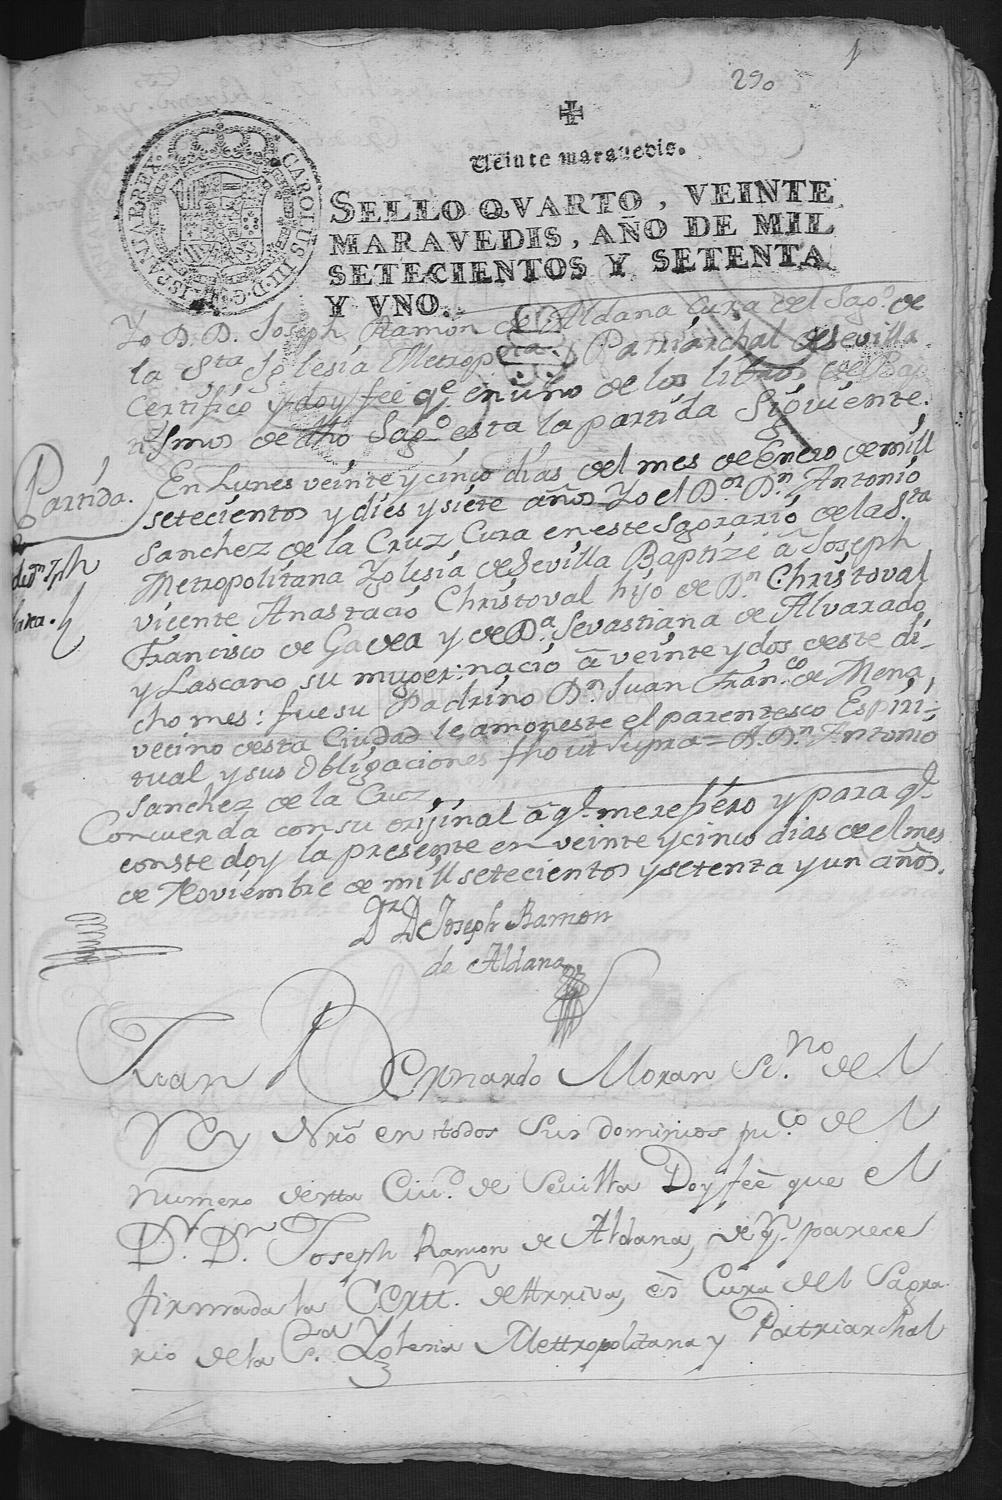 290
1
Veinte maravedis.
CAROLUS III D.G. HISPANIAR REX
SELLO QVARTO, VEINTE
MARAVEDIS, AÑO DE MIL
SETECIENTOS Y SETENTA
Y VNO.
Yo D. D. Joseph Ramon de Aldana Cura del Sagº. de
la Sta. Iglesia Metropotna. Patriarchal de Sevilla
Certifico y doy feé qe. en uno de los libros de Bap
tismos de dho Sagº. esta la partida siguiente.
Partida.
En Lunes veinte y cinco dias del mes de Enero de mill
setecientos y dies y siete años Yo el Dor. Dn. Antonio
Sanchez de la Cruz Cura en este Sagrario de la Sta.
Metropolitana Yglesia de Sevilla Baptizé â Joseph
vicente Anastacio Christoval hijo de Dn. Christoval
Francisco de Gadea y de Dª. Sevastiana de Alvarado
y Lascano su muger: nació â veinte y dos de este di-
cho mes: fue su Padrino Dn. Juan Franco. de Mena,
vecino desta Ciudad le amoneste el parentesco Espiri-
tual y sus Obligaciones fho ut supra = D. Dn. Antonio
Sanchez de la Cruz
Concuerda con su orijinal â qe. me refiero y para qe.
conste doy la presente en veinte y cinco dias de el mes
de Noviembre de mill setecientos y setenta y un años.
Dr. D. Joseph Ramon
de Aldana
Juan Bernardo Moran Sc.no de el
Rey Nro en todos sus dominios pu.co del
numero de esta Ciud. de Sevilla Doy feé que el
Dr. Dn. Joseph Ramon de Aldana, de qn. parece
firmada la Certt.n de Arriva, es Cura del Sagra-
rio de la Sta. Yglesia Mettropolitana y Patriarchal